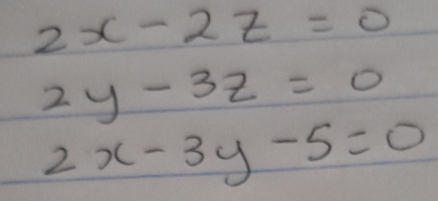 2x - 2z = 0
2y - 3z = 0
2x - 3y - 5 = 0